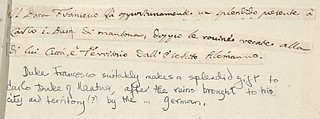 Il Duca Francesco fà opportunamente un splendido presente à
Carlo I. Duca di Mantova, doppo le rouine recate alla
di lui Città, e Territorio dall' Esercito Alemanno.
Duke Francesco suitably makes a splendid gift to
Carlo Duke of Mantua, after the ruins brought to his
city and territory (?) by the ... german,